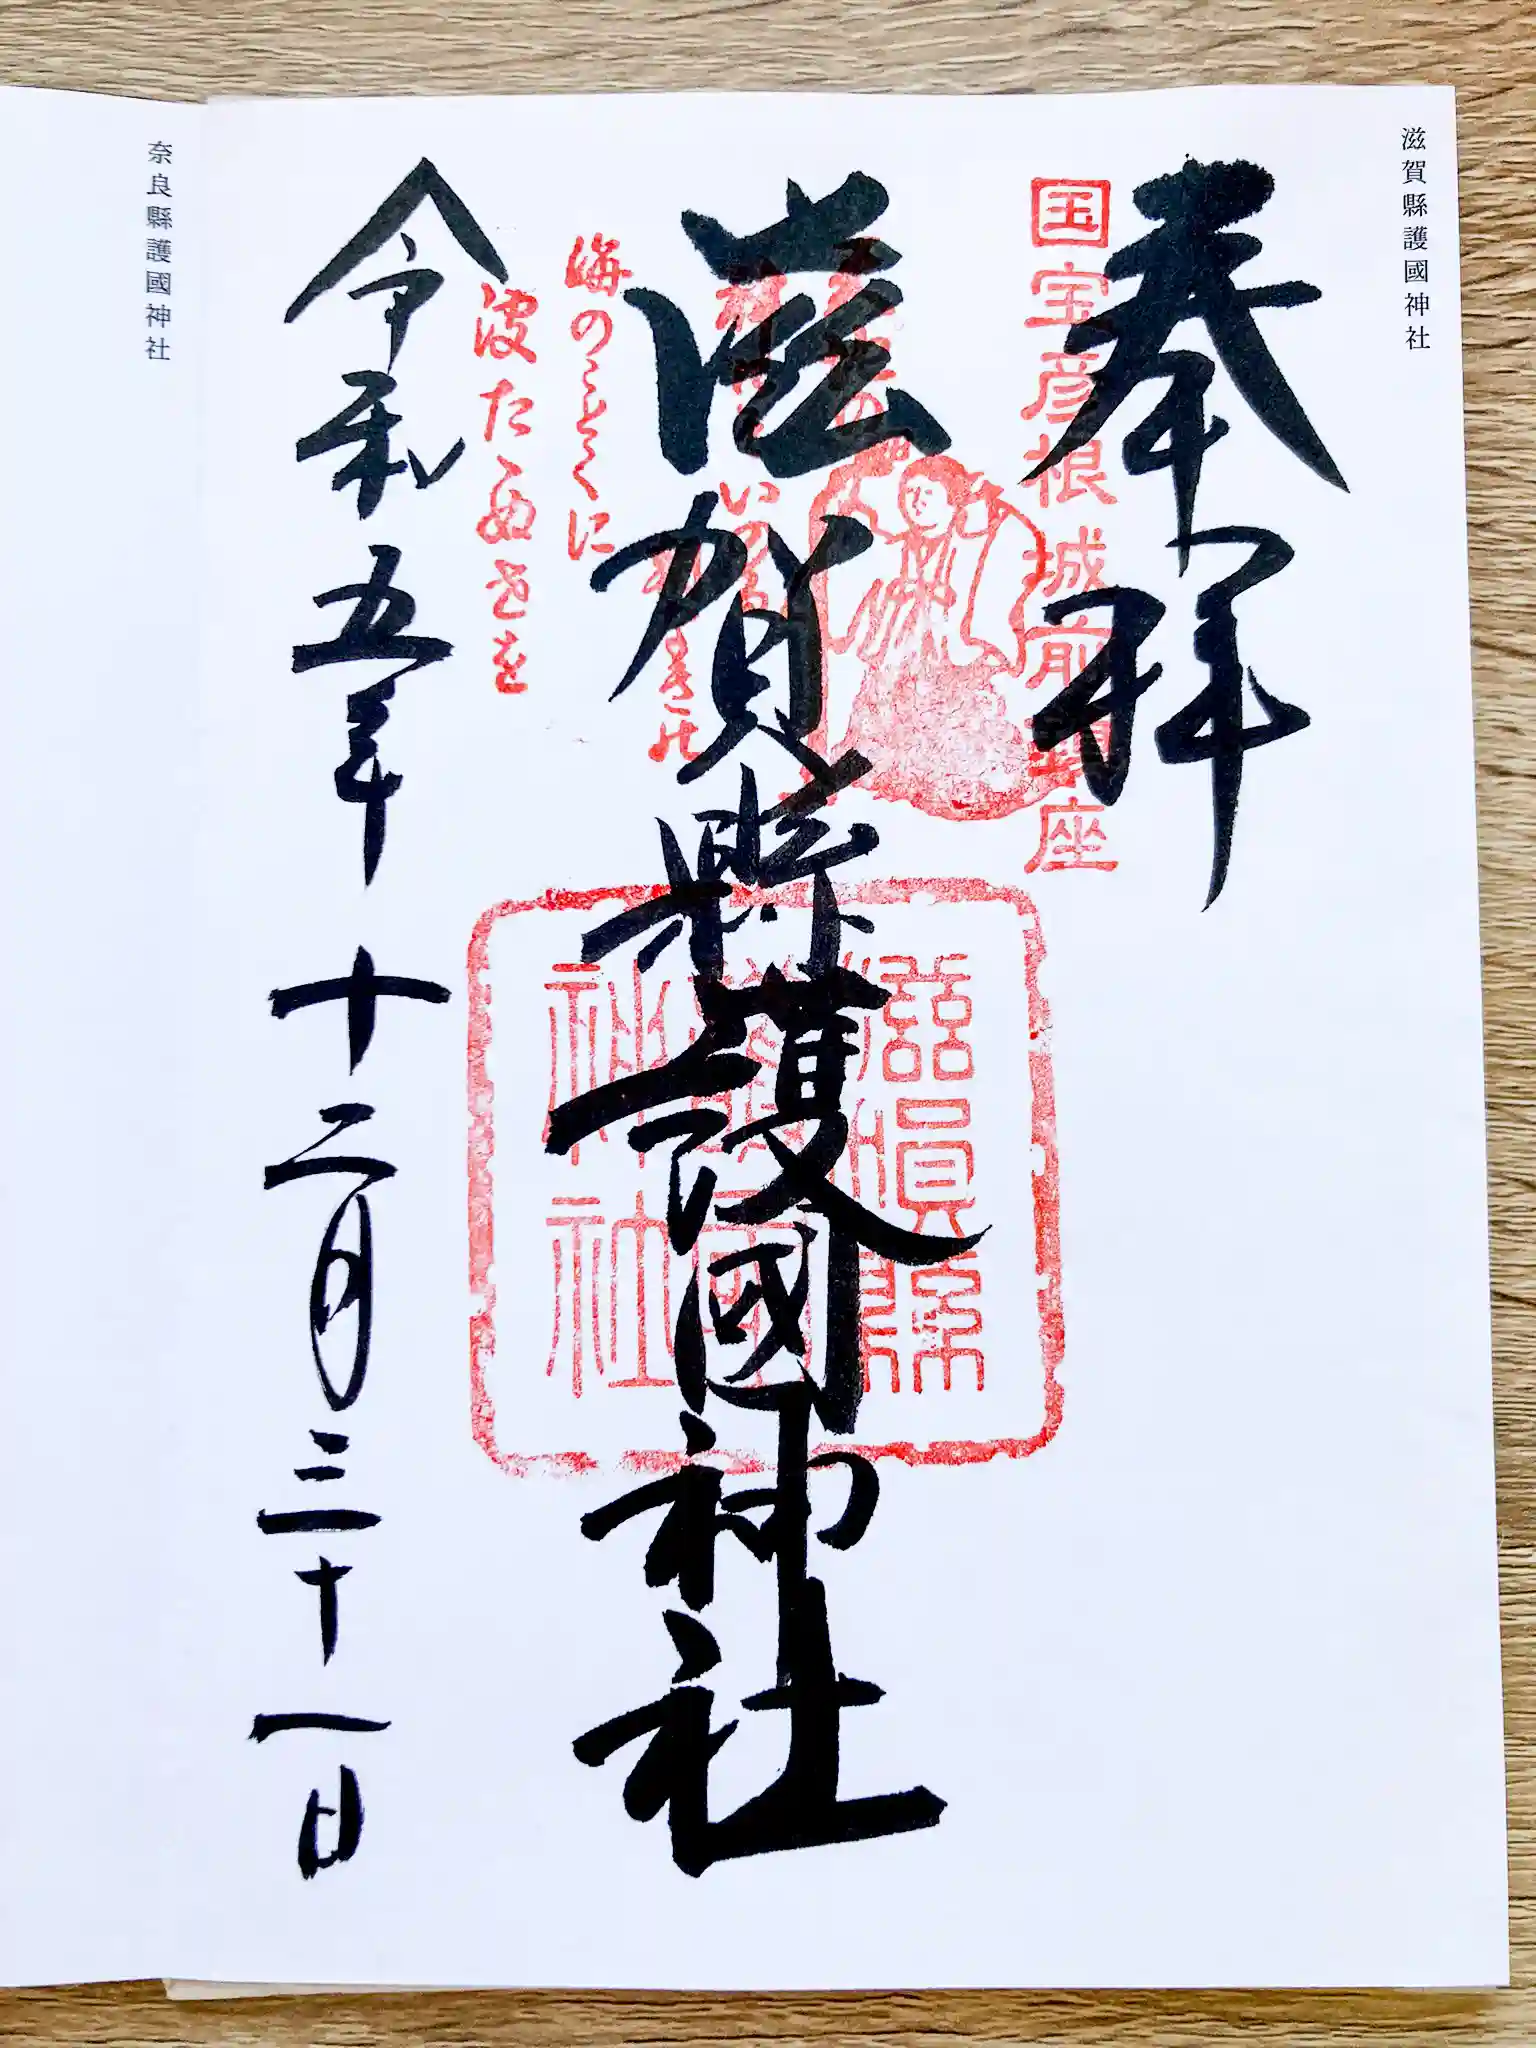 滋賀縣護國神社
奉拝
国宝彦根城前鎮座
滋賀縣護國神社
滋賀縣
護國
神社
海のことくに
波たぬさを
令和五年十二月三十一日
奈良縣護國神社